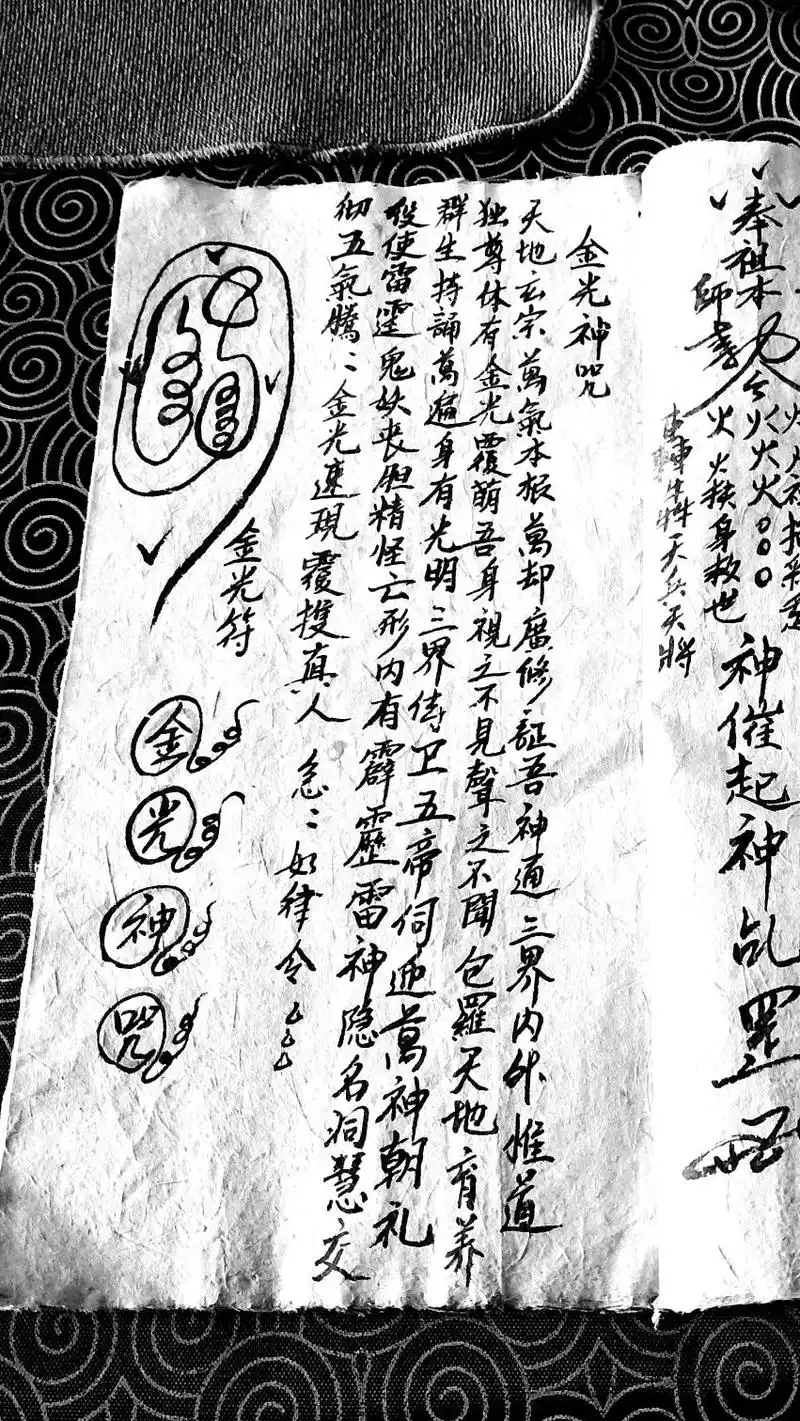 奉祖本
師
火火火
火火换身救世
天兵天將
神催起神
罡
金光神咒
天地玄宗萬氣本根萬却廣修証吾神通三界内外惟道
独尊体有金光覆萌吾身視之不見聲之不聞包羅天地育养
群生持誦萬遍身有光明三界侍卫五帝伺迎萬神朝礼
役使雷霆鬼妖丧胆精怪亡形内有霹靂雷神隐名洞慧交
彻五氣騰〻金光速現覆投真人 急〻如律令
金光符
金
光
神
咒